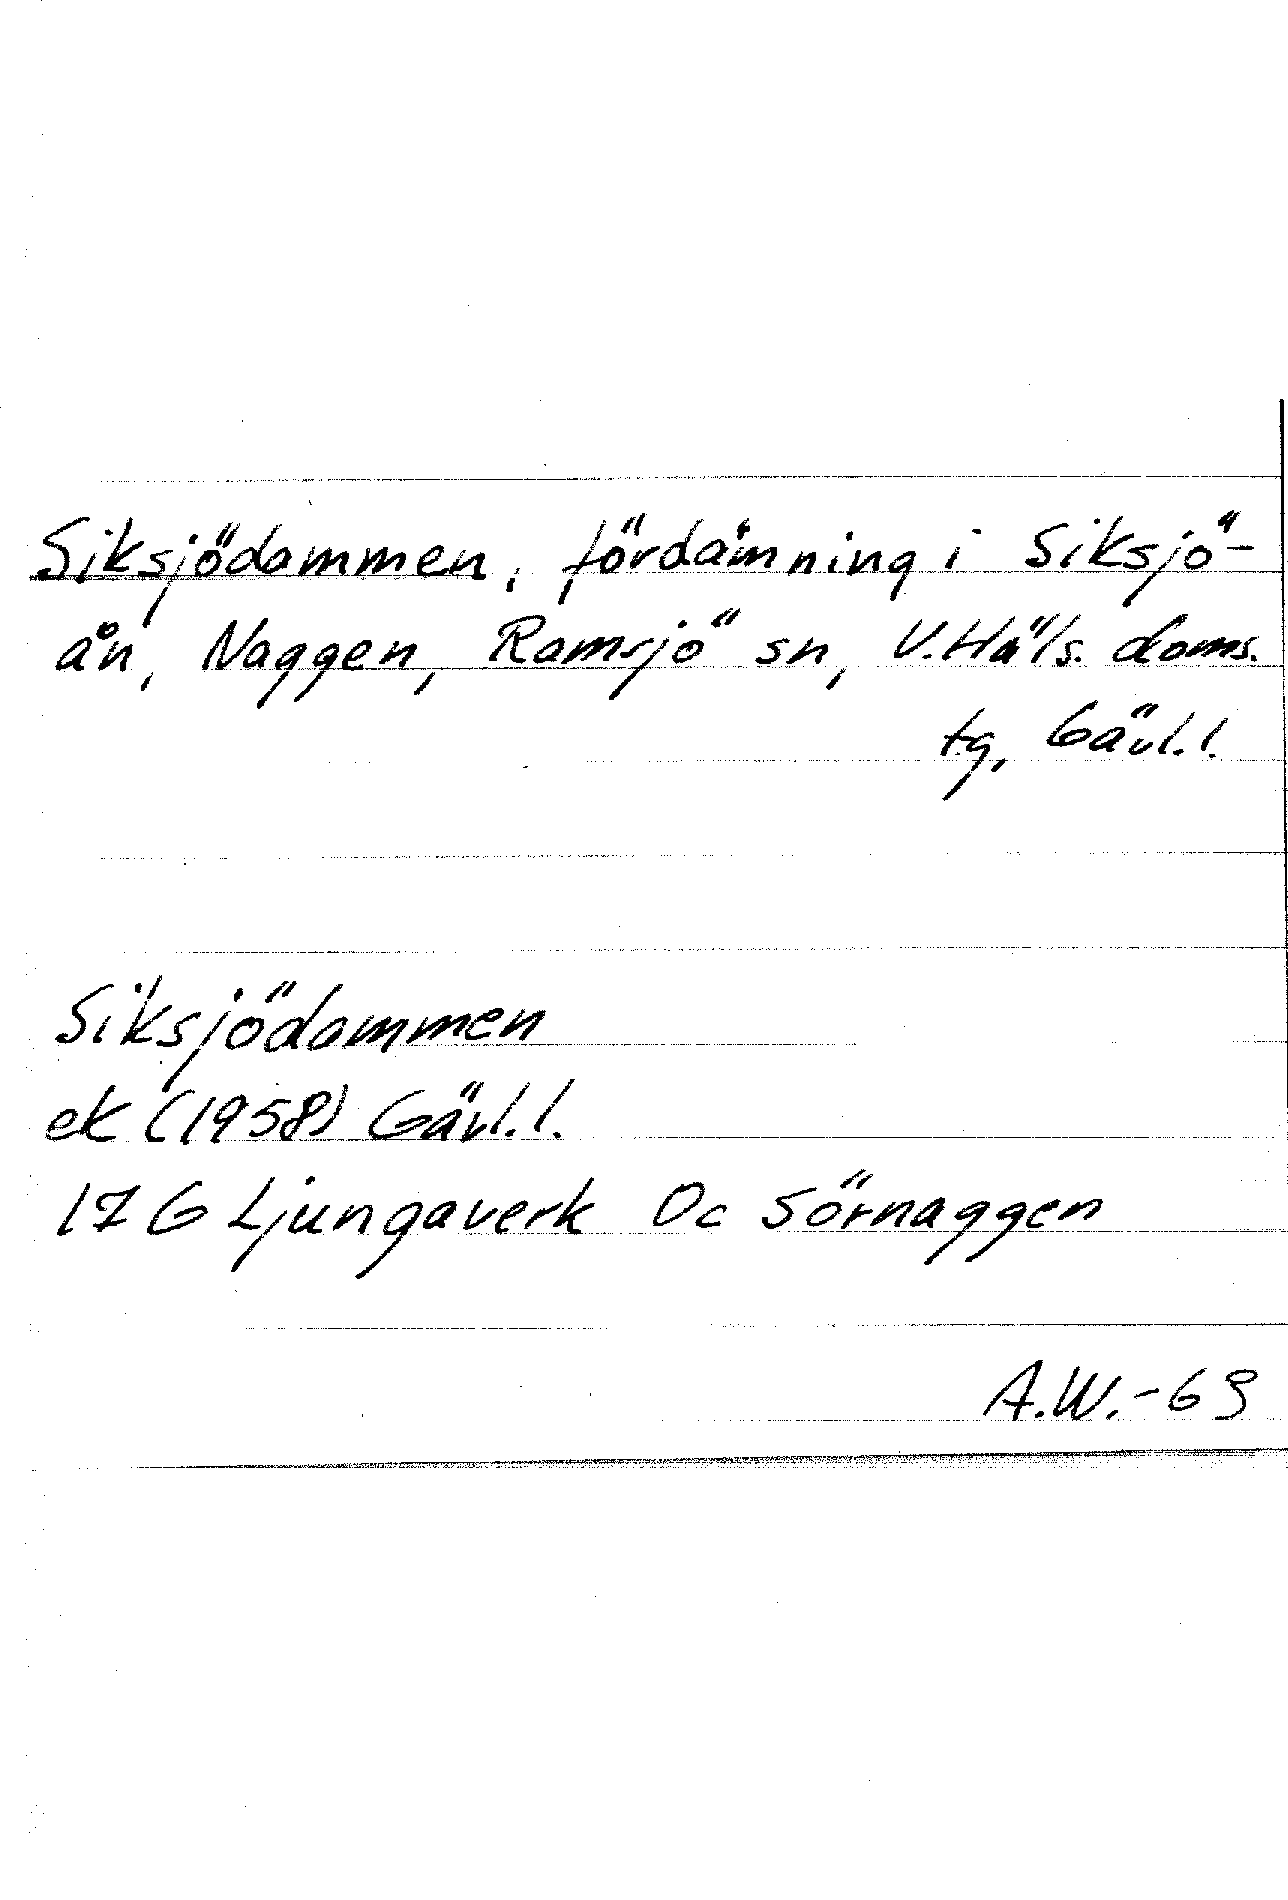 Siksjödammen, fördämning i Siksjö-
ån, Naggen, Ramsjö sn, V. Häls. doms.
tg, Gävl.l.
Siksjödammen
ek (1958) Gävl.l.
17 G Ljungaverk Oc Sörnaggen
A.W.-69